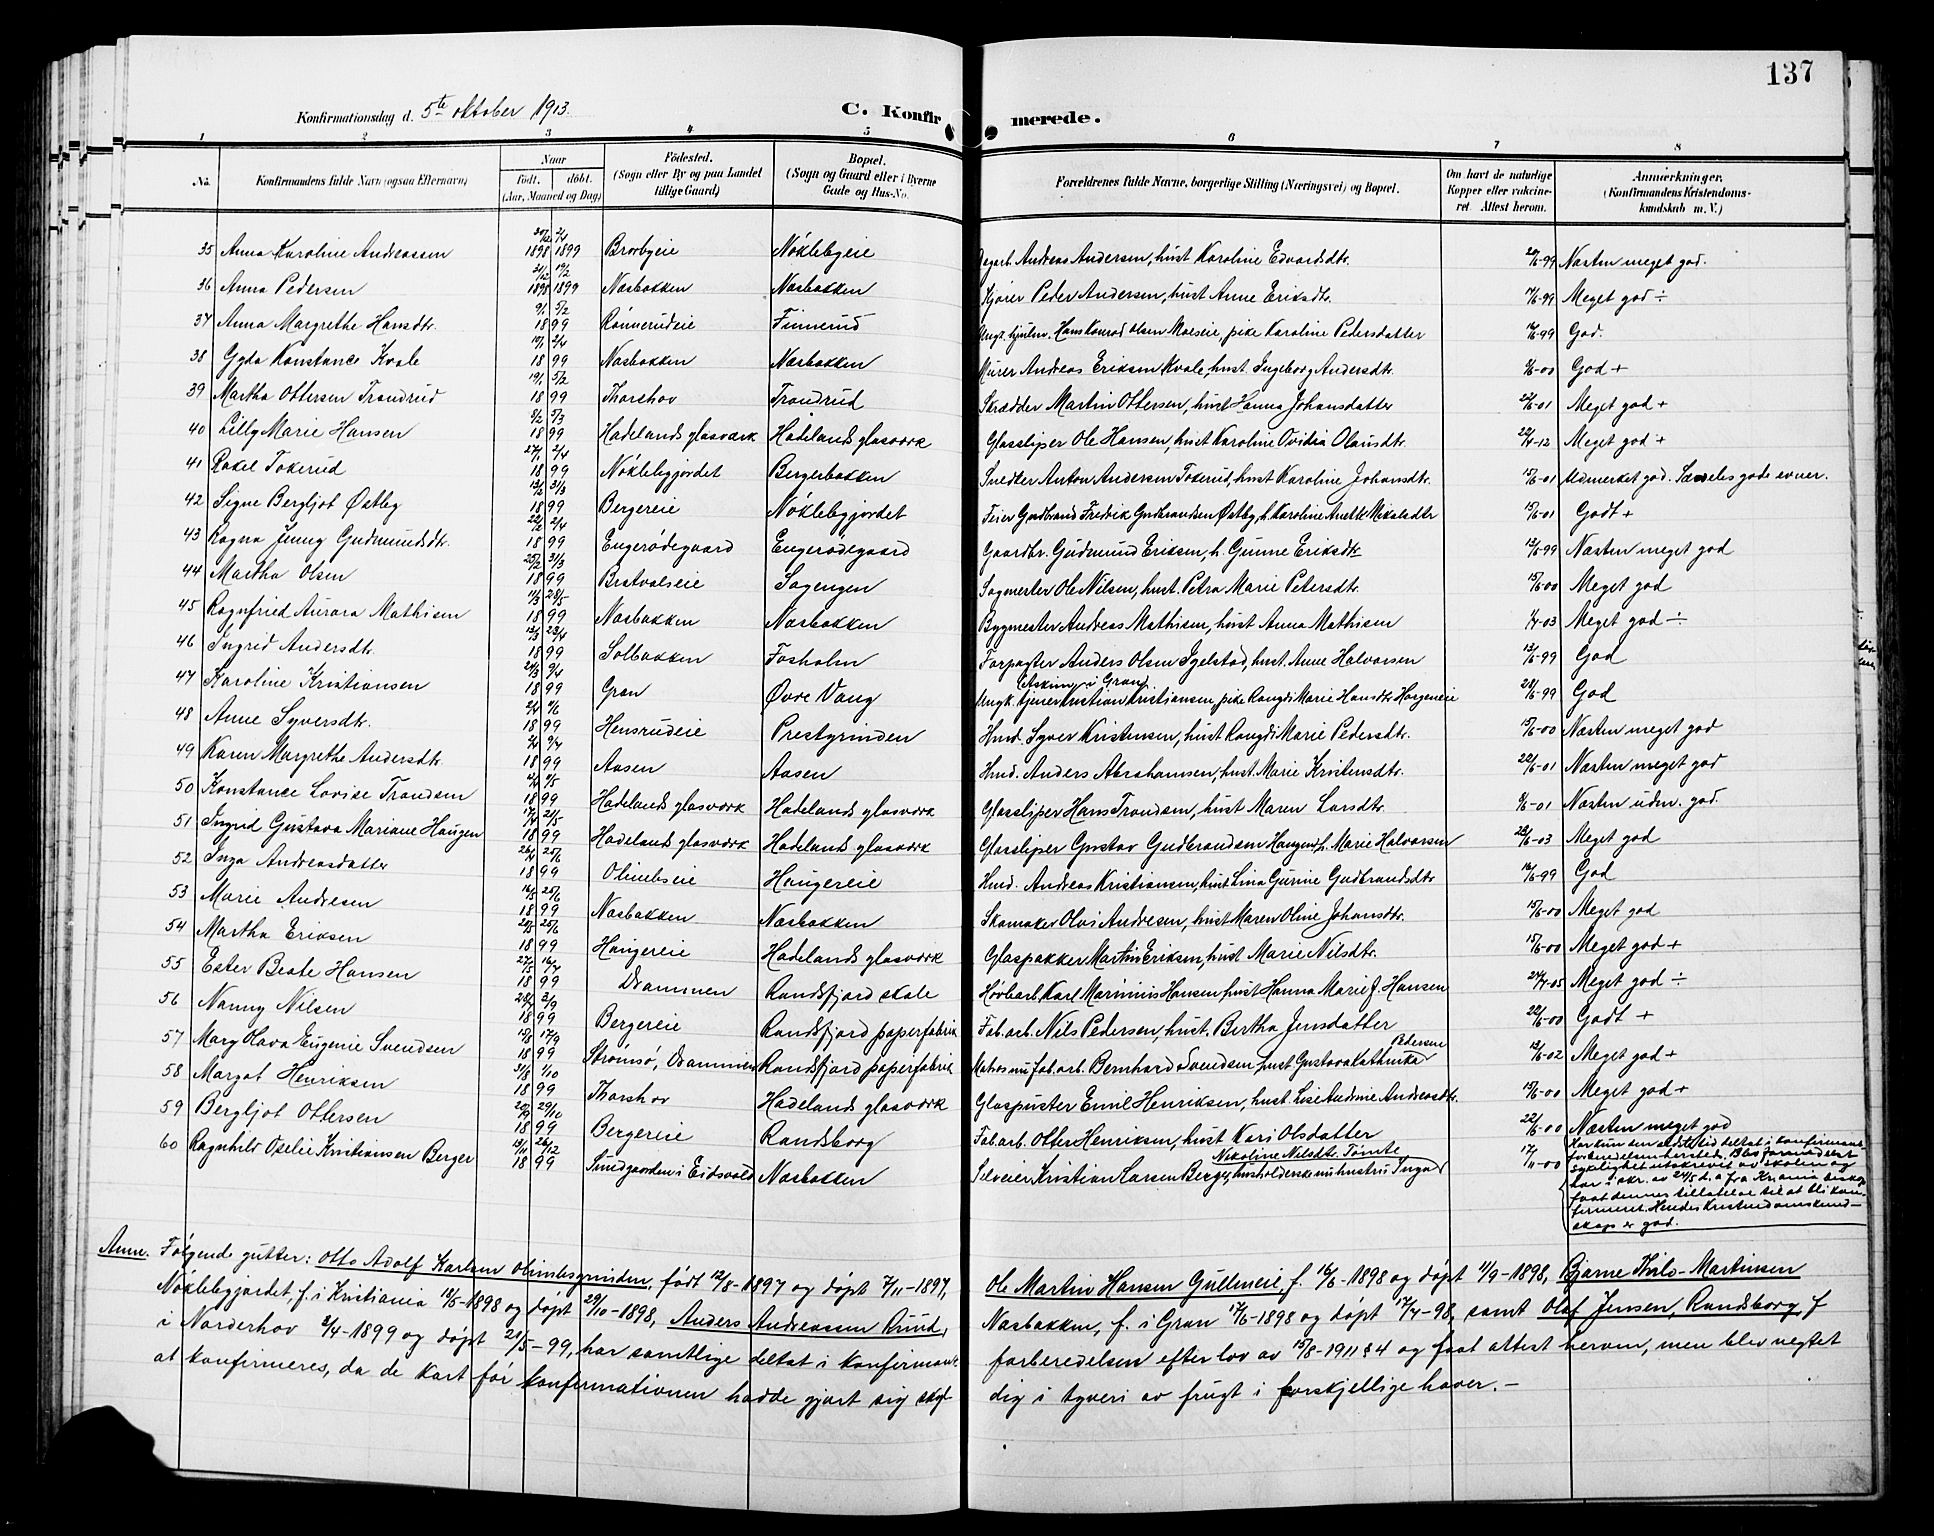 137
Konfirmationsdag d. 5te oktober 1913.
C. Konfir merede.
1 2 3 4 5 6 7 8
No. Konfirmandens fulde Navn (ogsaa Efternavn) Naar født. døbt. (Aar, Maaned og Dag) Födested. (Sogn eller By og paa Landet tillige Gaard) Bopæl. (Sogn og Gaard eller i Byerne Gade og Hus-No. Forældrenes fulde Navne, borgerlige Stilling (Næringsvei) og Bopæl. Om havt de naturlige Kopper eller vakcineret. Attest herom. Anmærkninger. (Konfirmandens Kristendomskundskab m. V.)
35 Anna Karoline Andreassen 1898 2/4 1899 Brorbyeie Nøklebyeie Andreas Andersen, hust Karoline Edvardsdtr. Næsten meget god.
36 Anna Pedersen 21/12 1898 19/2 1899 Næsbakken Næsbakken Kjører Peder Andersen, hust Anne Eriksdtr. Meget god ÷
37 Anna Margrethe Hansdtr. 9/1 5/2 1899 Rønnerudeie Finnerud Hans Konrad Olsen Moeseie, pike Karoline Pedersdatter God.
38 Gyda Konstance Kvale 17/1 2/4 1899 Næsbakken Næsbakken Murer Andreas Eriksen Kvale, hust. Ingeborg Andersdtr. God +
39 Martha Ottersen Trondrud 19/1 5/2 1899 Thorshov Trondrud Skrædder Martin Ottersen, hust Hanna Johansdatter Meget god +
40 Lilly Marie Hansen 8/2 5/3 1899 Hadelands glasværk Hadelands glasværk Glassliper Ole Hansen, hust Karoline Ovidia Olausdtr. 22/4-12 Meget god +
41 Rakel Tokerud 27/1 2/4 1899 Nøklebygjordet Bergerbakken Snedker Anton Andersen Tokerud, hust Karoline Johansdtr. 15/6-01 Udmerket god. Særdeles gode evner.
42 Signe Bergljot Østby 13/2 31/3 1899 Bergereie Nøklebygjordet Feier Gudbrand Fredrik Gudbrandsen Østby, h. Karoline Anette 15/6-01 Godt +
43 Ragna Jenny Gudmundsdtr. 22/2 2/4 1899 Engerødegaard Engerødegaard Gaardbr. Gudmund Eriksen, h. Gunne Eriksdtr 13/6-99 Næsten meget god
44 Martha Olsen 25/2 31/3 1899 Bratvalseie Sagengen Sagmester Ole Nilsen, hust. Petra Marie Petersdtr. 15/6-00 Meget god
45 Ragnfried Aurora Mathisen 11/3 28/5 1899 Næsbakken Næsbakken Bygmester Andreas Mathisen, hust Anna Mathisen Meget god ÷
46 Ingrid Andersdtr. 13/3 23/4 1899 Solbakken Fosholm Forpagter Anders Olsen Igelstad, hust. Anne Halvorsen 13/6-99 God
47 Karoline Kristiansen 21/3 9/4 1899 Gran Øvre Vang Ungk. tjener Kristian Kristiansen, Eskim i Gran pike Rangdi Marie Hansdtr Horgeneie God
48 Anne Syversdtr. 1899 Hensrudeie Prestgrinden Hmd. Syver Kristensen, hust Rangdi Marie Pedersdtr. 15/6-00 Næsten meget god
49 Karen Margrethe Andersdtr. 1899 Aasen Aasen Hmd. Anders Abrahamsen, hust. Marie Kristensdtr. 22/6-01 Næsten meget god
50 Konstance Lovise Trondsen 1899 Hadelands glasværk Hadelands glasværk Glassliper Hans Trondsen, hust Maren Larsdtr. Næsten udm. god.
51 Ingrid Gustava Mariane Haugen 17/4 21/5 1899 Hadelands glasværk Hadelands glasværk Glassliper Gustav Gudbrandsen Haugen, h. Marie Halvorsen 23/6-03 Meget god
52 Inga Andreasdatter 26/4 25/6 1899 Olimbseie Haugereie Hmd. Andreas Kristiansen, hust Lina Gurine Gudbrandsdtr 16/6-99 God
53 Marie Andresen 16/5 25/6 1899 Næsbakken Næsbakken Skomaker Olai Andresen, hust Maren Oline Johansdtr. 15/6-00 Meget god
54 Martha Eriksen 25/6 1899 Haugereie Hadelands glasværk Glaspakker Martin Eriksen, hust Marie Nilsdtr. 15/6-00 Meget god +
55 Ester Beate Hansen 27/5 16/7 1899 Drammen Randsfjord skole Høvlarb. Karl Marinius Hansen, hust Hanna Marie J. Hansen Meget god ÷
56 Nanny Nilsen 3/9 1899 Bergereie Randsfjord papirfabrik Fab. arb. Nils Pedersen, hust. Bertha Jensdatter 22/6-00 Godt +
57 Mary Olava Eugenie Svendsen 15/8 17/9 1899 Strømsø, Drammen Randsfjord papirfabrik Matros nu fab. arb. Bernhard Svendsen, hust Gustava Kathinka Pedersen 13/6-02 Meget god +
58 Margot Henriksen 31/8 1/10 1899 Thorshov Hadelands glasværk Glaspuster Emil Henriksen, hust. Lise Andrine Andreasdtr. 15/6-00 Meget god +
59 Bergljot Ottersen 29/10 1899 Bergereie Randsborg Fab. arb. Otter Henriksen, hust Kari Olsdatter 22/6-00 Næsten meget god
60 Ragnhild Oselie Kristiansen Berger 13/11 26/12 1899 Smedgaarden i Eidsvold Næsbakken Kristian Larsen Berger, husholderske nu hustru Inga Nikoline Nilsdtr. Tømte 17/11-00 Har kun den sidste tid deltat i konfirmantforberedelsen hersteds. Blev formedelst sykelighet utskrevet av skolen og har i skr. av 24/5 d. a. fra Kr.ania biskop faat dennes tillatelse til at bli konfirmeret. Hendes Kristendomskundskap er god.
Anm. Følgende gutter: Otto Adolf Karlsen Olimbsgrinden, født 12/8-1897 og døpt 7/11-1897, Ole Martin Hansen Gullmeie, f. 16/6-1898 og døpt 11/9-1898, Bjarne Thilo-Martinsen
Nøklebygjordet, f. i Kristiania 13/5-1898 og døpt 29/10-1898, Anders Andreassen Ruud, Næsbakken, f. i Gran 17/6-1898 og døpt 17/7-98, samt Olaf Jensen, Randsborg, f
i Norderhov 2/4-1899 og døpt 21/5-99, har samtlige deltat i konfirmantforberedelsen efter lov av 15/8-1911 § 4 og faat attest herom, men blev negtet
at konfirmeres, da de kort før konfirmationen hadde gjort sig skyldig i tyveri av frugt i forskjellige haver. -